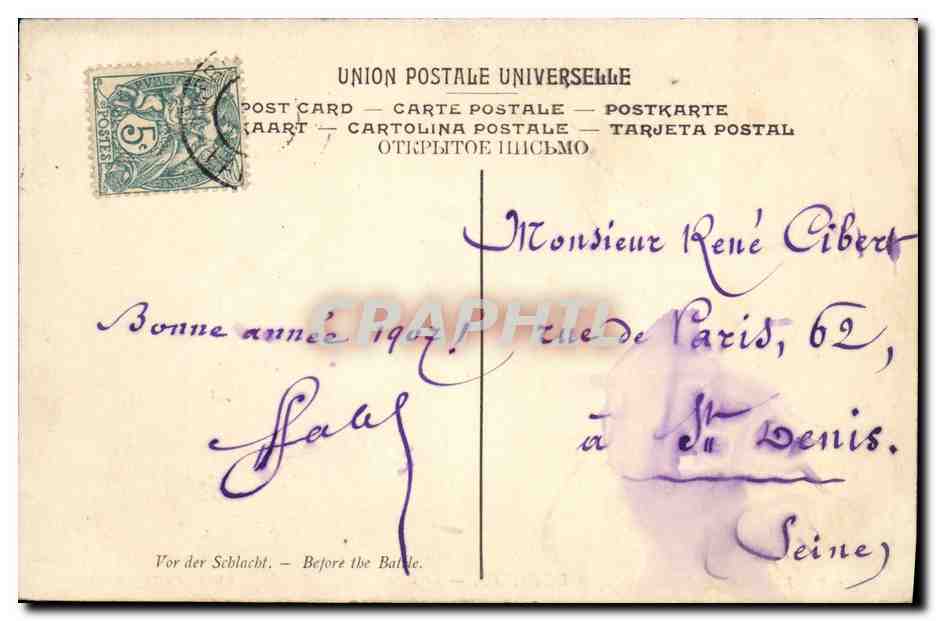 UNION POSTALE UNIVERSELLE
POST CARD — CARTE POSTALE — POSTKARTE
KAART — CARTOLINA POSTALE — TARJETA POSTAL
ОТКРЫТОЕ ПИСЬМО
5c
POSTES
Monsieur René Cibert
rue de Paris, 62,
à St Denis.
Seine
Bonne année 1907!
CRAPHIL
Vor der Schlacht. — Before the Battle.